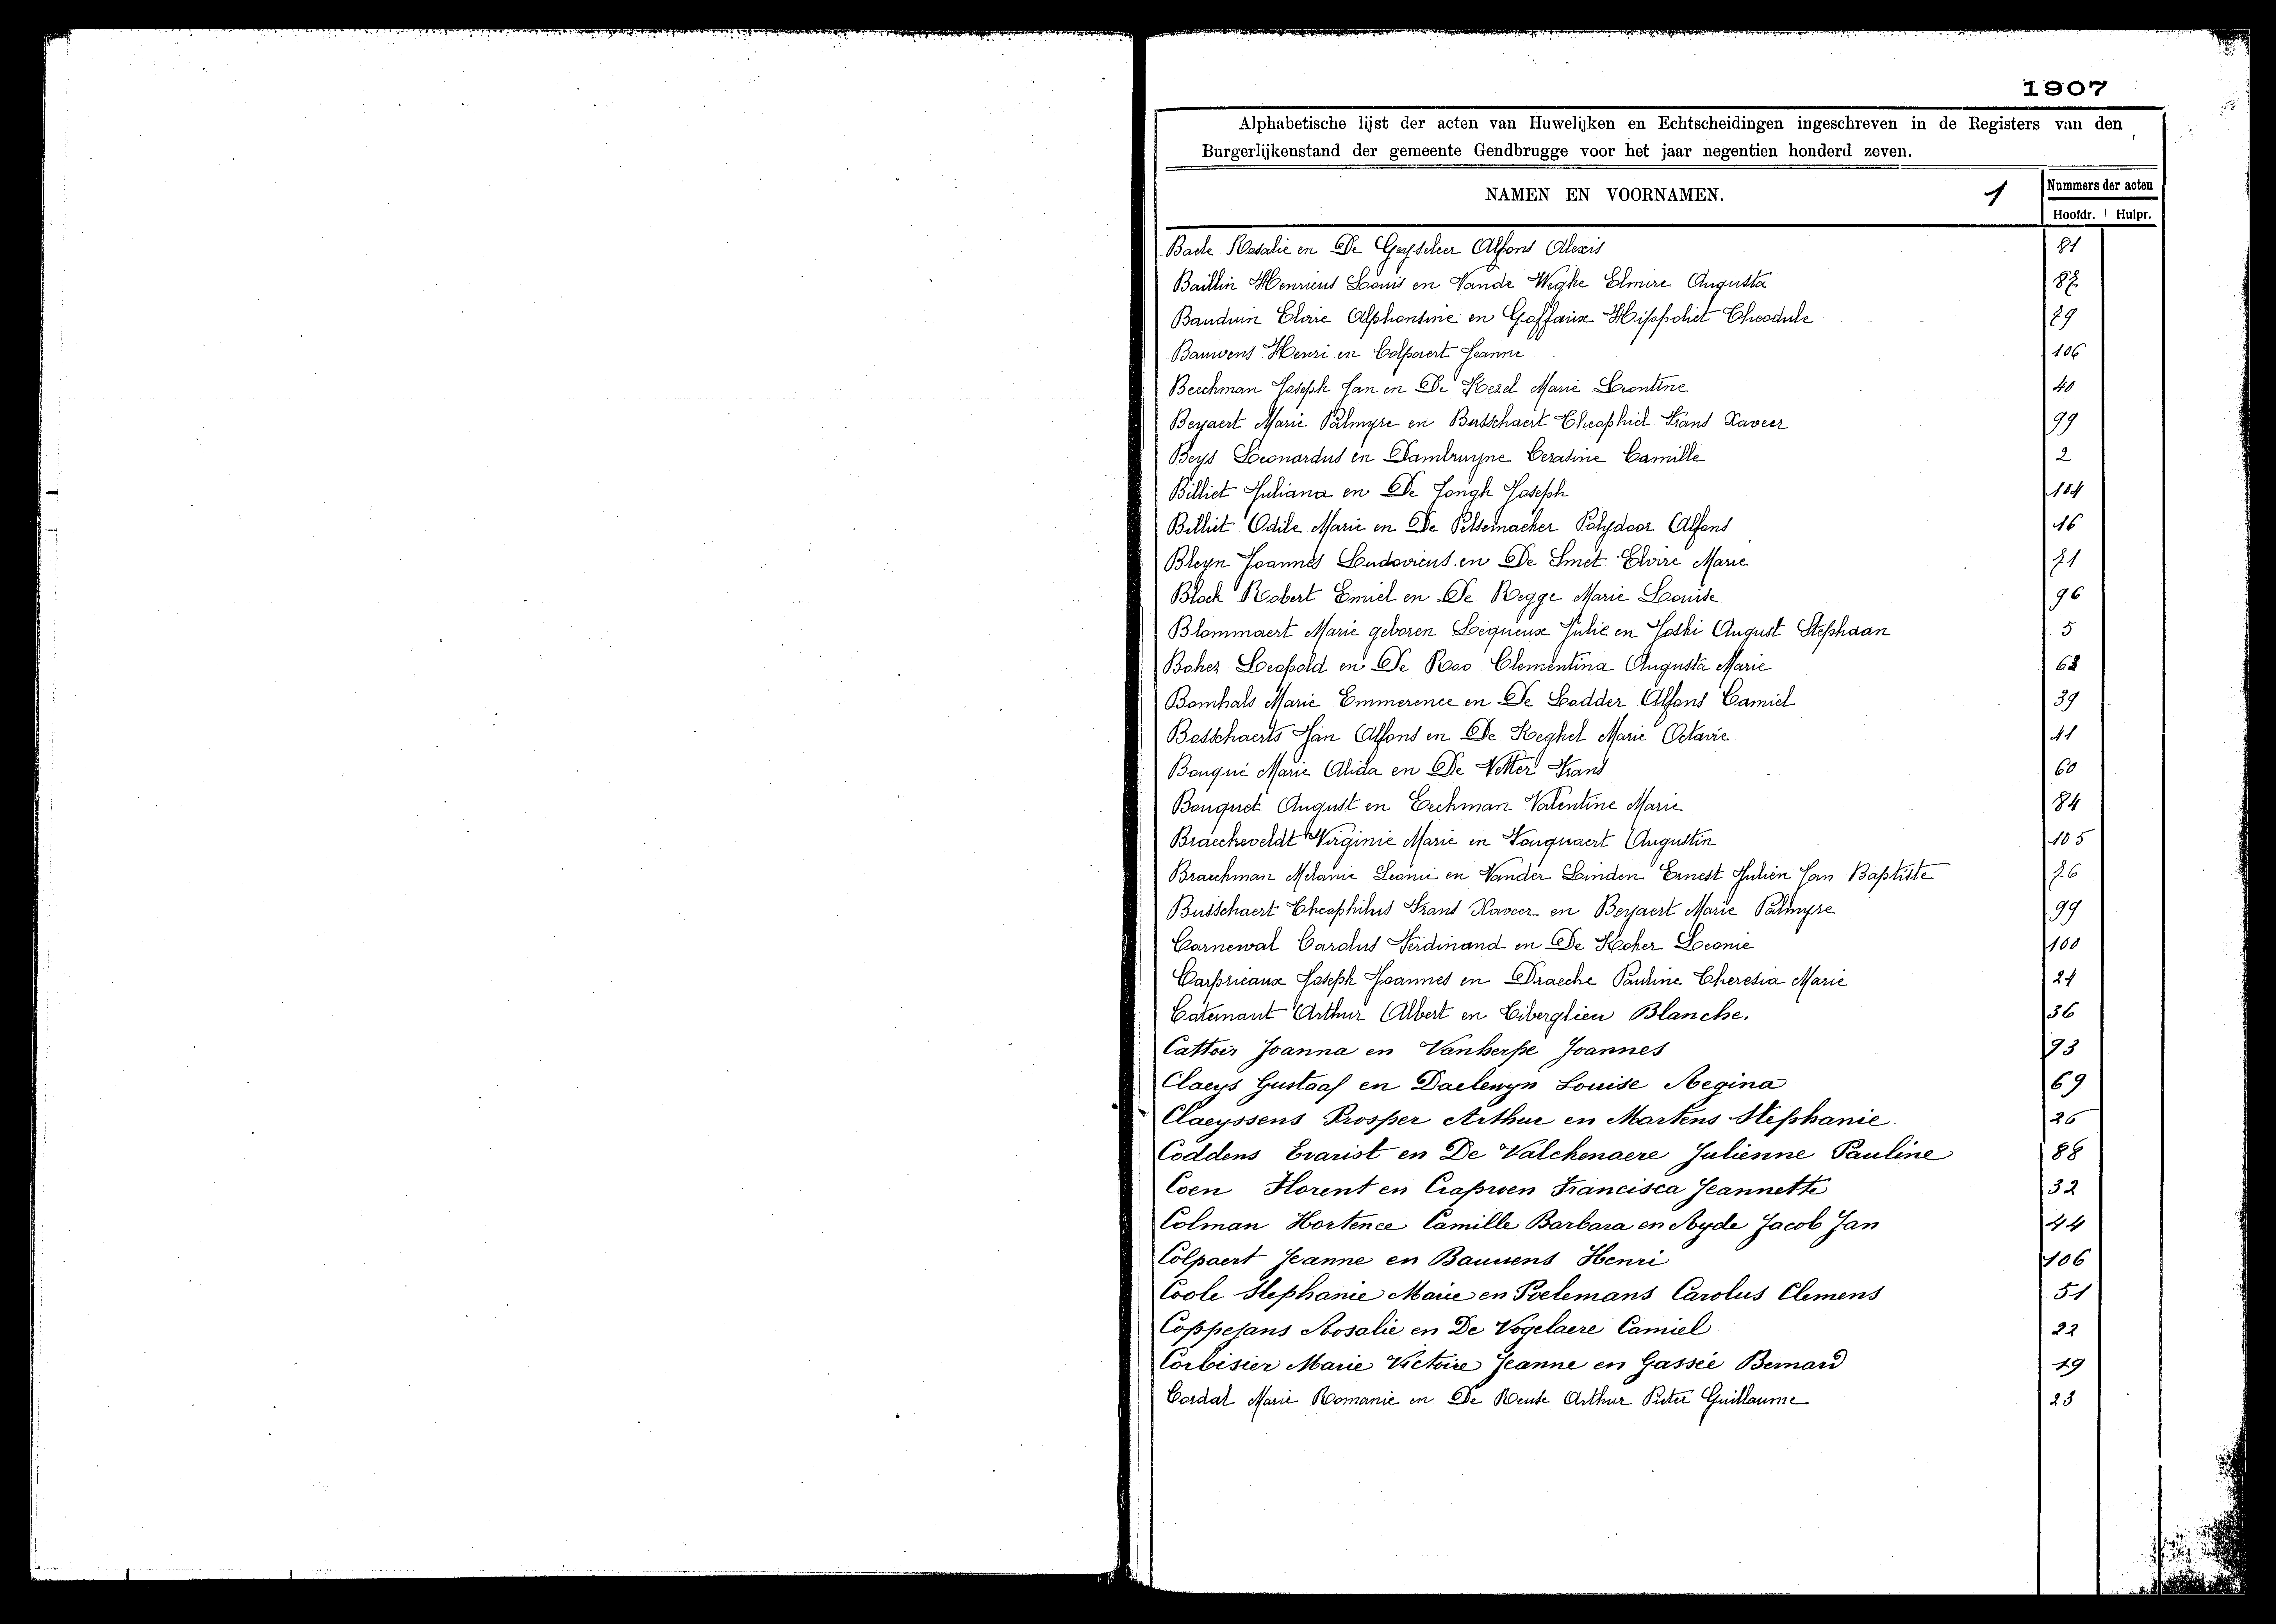 1907
Alphabetische lijst der acten van Huwelijken en Echtscheidingen ingeschreven in de Registers van den
Burgerlijkenstand der gemeente Gendbrugge voor het jaar negentien honderd zeven.
NAMEN EN VOORNAMEN. 1 Nummers der acten
Hoofdr. Hulpr.
Rosalie en De Alfons Alexis 81
Baillin Henricus Louis en Vande Weghe Elmire Augusta 87
Bauduin Alphonsine en Goffaux Hippoliet Theodule 79
Bauwens Henri en Colpaert Jeanne 106
Beeckman Joseph Jan en De Kezel Marie Leontine 40
Beyaert Marie Palmyre en Busschaert Theophiel Frans Xaveer 99
Beys Leonardus en Dambruyne Cesarine Camille 2
Billiet Juliana en De Jongh Joseph 104
Billiet Odile Marie en De Pelsemaeker Polydoor Alfons 16
Bleyn Joannes Ludovicus en De Smet Elvire Marie 71
Block Robert Emiel en De Regge Marie Louise 96
Blommaert Marie geboren Lequeux Julie en August Stephaan 5
Bohez Leopold en De Roo Clementina Augusta Marie 68
Bomhals Marie Emmerence en De Lodder Alfons Camiel 39
Bosschaerts Jan Alfons en De Keghel Marie Octavie 41
Bouqué Marie Alida en De Vetter Frans 60
Bouquet August en Eeckman Valentine Marie 84
Braeckeveldt Virginie Marie en Augustin 105
Braeckman Melanie Leonie en Vander Linden Ernest Julien Jan Baptiste 76
Busschaert Theophilus Frans Xaveer en Beyaert Marie Palmyre 99
Carnewal Carolus Ferdinand en De Koker Leonie 100
Carprieaux Joseph Joannes en Draecke Pauline Theresia Marie 24
Catemant Arthur Albert en Tiberghien Blanche. 36
Cattoir Joanna en Vanherpe Joannes 93
Claeys Gustaaf en Daelewyn Louise Regina 69
Claeyssens Prosper Arthur en Martens Stephanie 26
Coddens Evarist en De Valckenaere Julienne Pauline 88
Coen Florent en Crapwen Francisca Jeannette 32
Colman Hortence Camille Barbara en Ryde Jacob Jan 44
Colpaert Jeanne en Bauwens Henri 106
Coole Stephanie Marie en Poelemans Carolus Clemens 51
Coppejans Rosalie en De Vogelaere Camiel 22
Corbisier Marie Victoire Jeanne en Gassée Bernard 19
Cordal Marie Romanie en De Reuse Arthur Pieter Guillaume 23